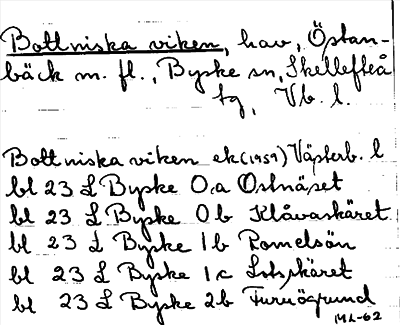 Bottniska viken, hav, Östan-
bäck m. fl., Byske sn, Skellefteå
tg, Vb. l.
Bottniska viken ek (1959) Västerb. l
bl 23 L Byske 0a Ostnäset
bl 23 L Byske 0b Klåvaskäret
bl 23 L Byske 1b Romelsön
bl 23 L Byske 1c
bl 23 L Byske 2b Furuögrund
ML-62